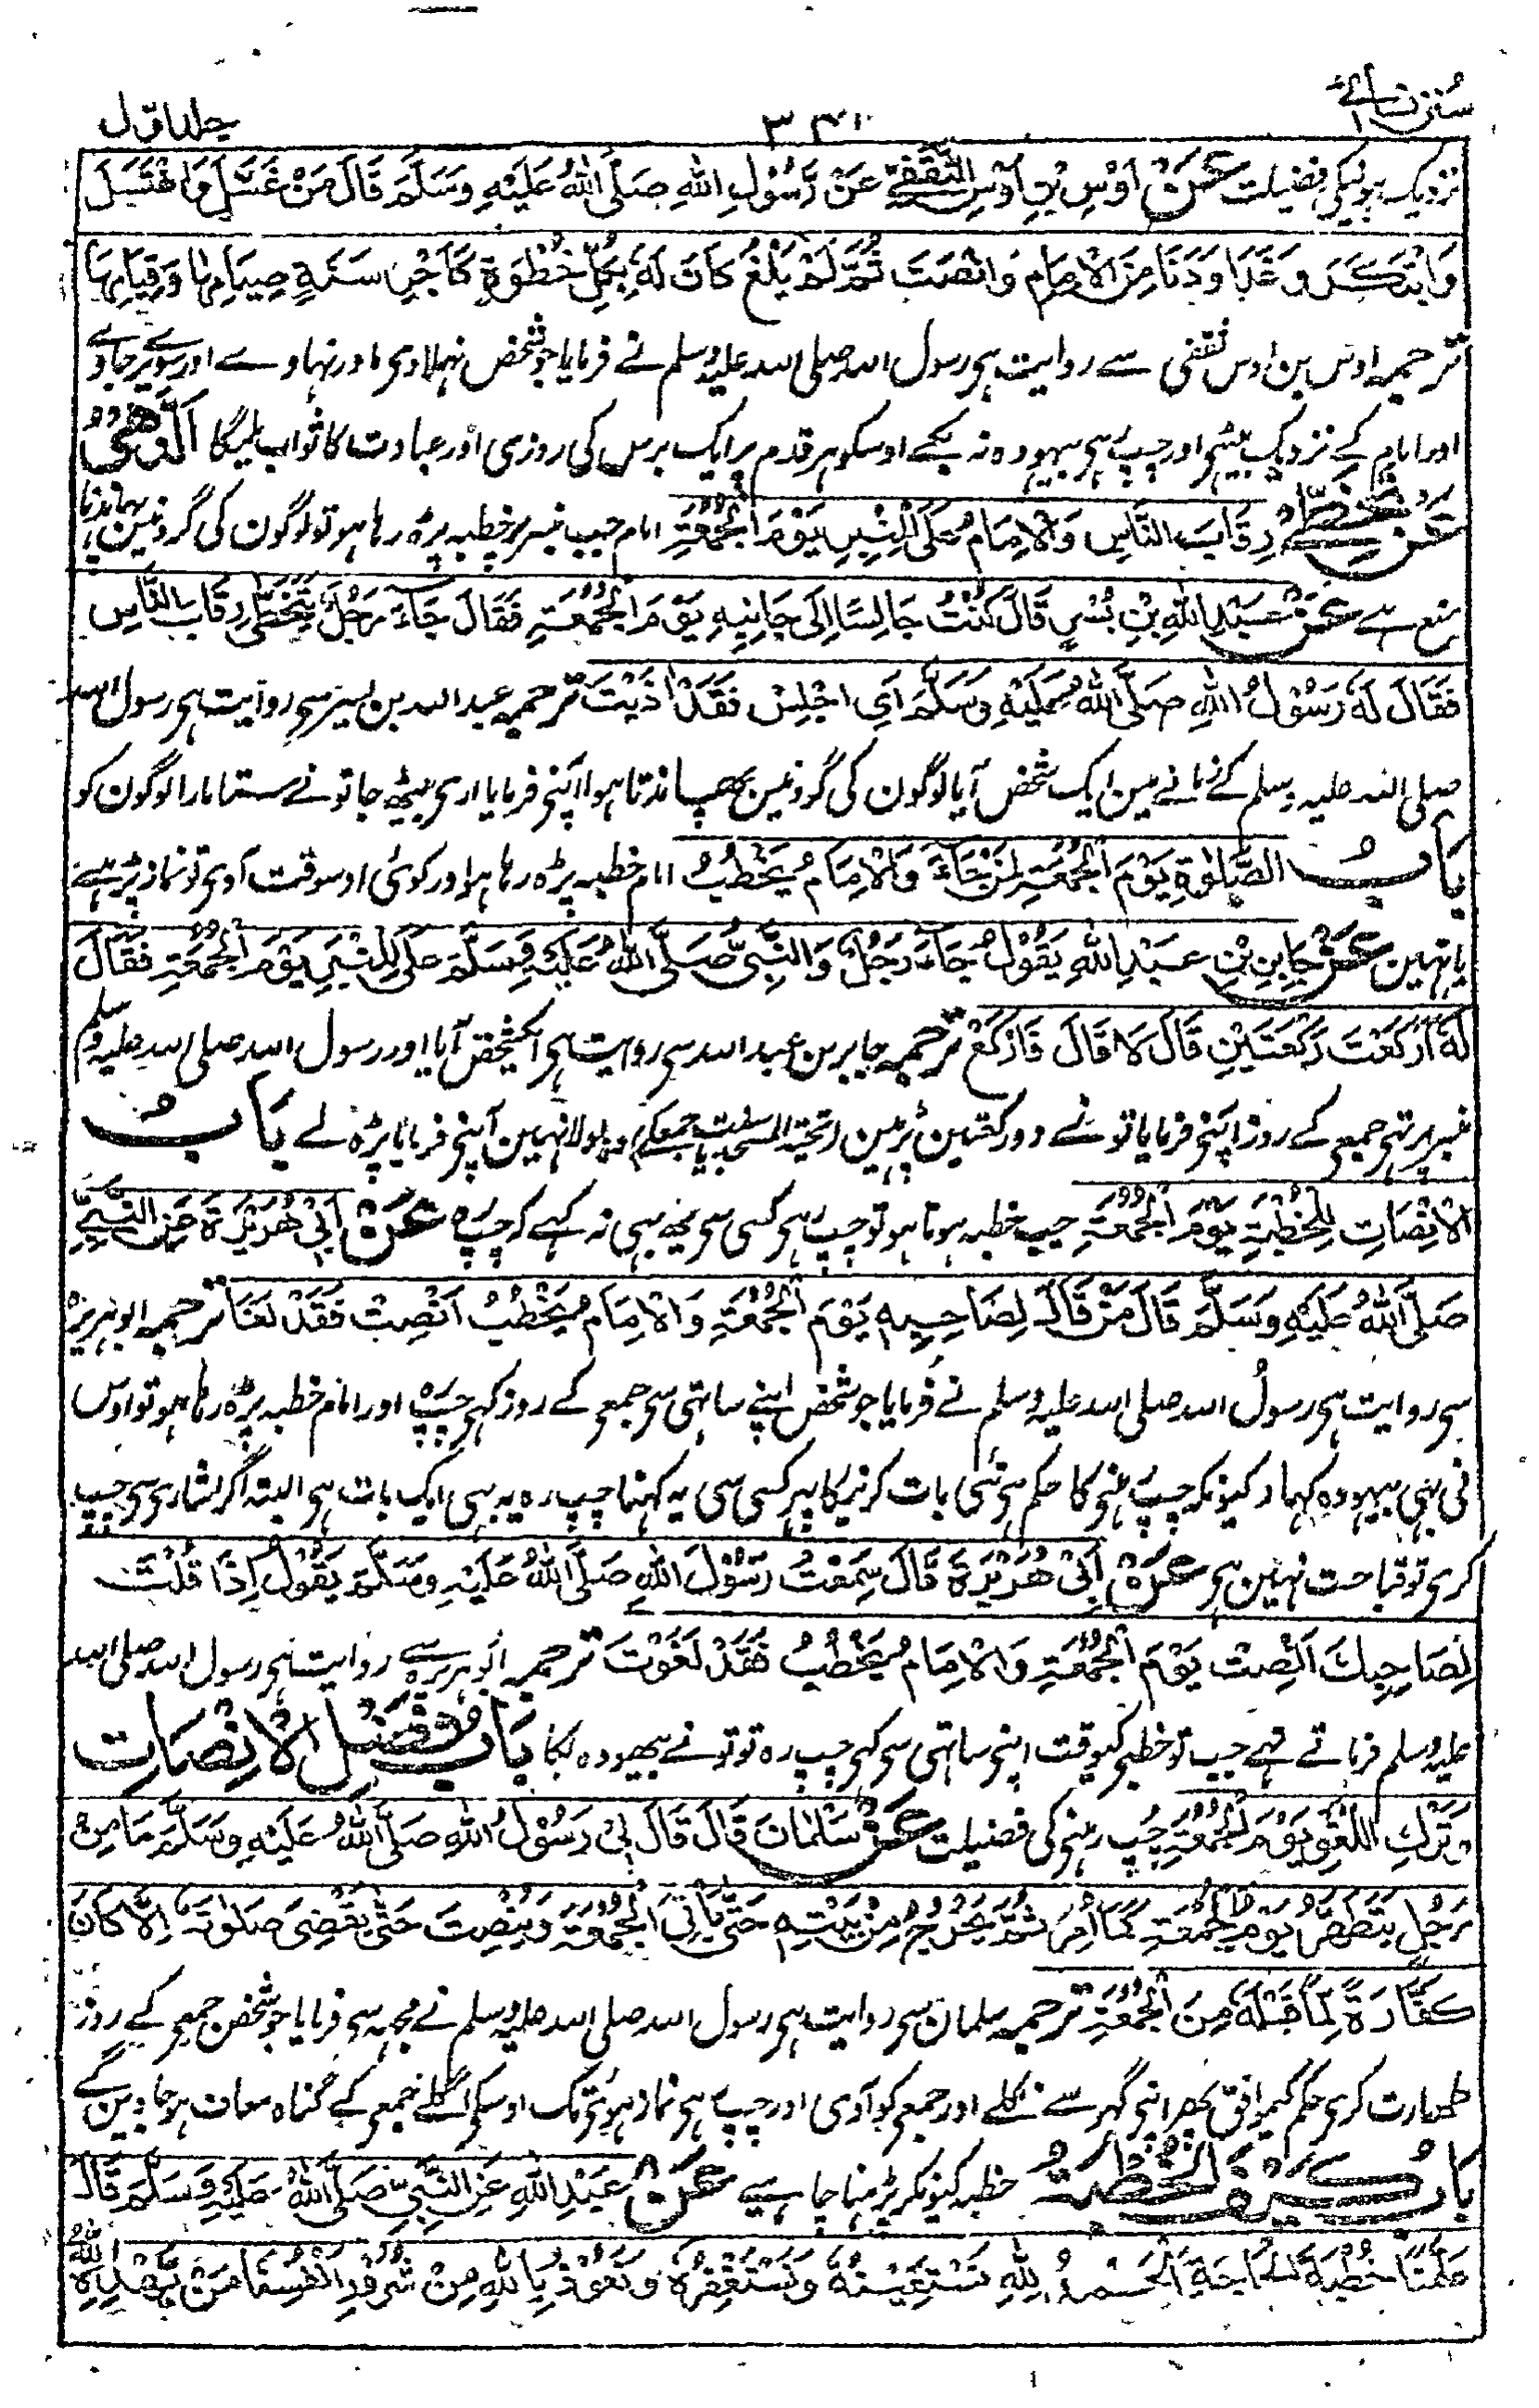 سنن نسائے
جلد اول
نزدیک ہونیکی فضیلت عَنْ اَوْسِ بْنِ اَوْسِ الثَّقَفِيِّ عَنْ رَّسُوْلِ اللهِ صَلَّى اللهُ عَلَيْهِ وَسَلَّمَ قَالَ مَنْ غَسَّلَ وَاغْتَسَلَ
وَابْتَكَرَ وَغَدَا وَدَنَا مِنَ الْاِمَامِ وَانْصَتَ ثُمَّ لَمْ يَلْغُ كَانَ لَهٗ بِكُلِّ خُطْوَةٍ كَاَجْرِ سَنَةٍ صِيَامِهَا وَقِيَامِهَا
ترجمہ اوس بن اوس ثقفی سے روایت ہی رسول اللہ صلی اللہ علیہ وسلم نے فرمایا جو شخص نہلاوی اور نہاوے اور سویرے جاوے
اور امام کے نزدیک بیٹھی اور چپ رہی بیہودہ نہ بکے اوسکو ہر قدم پر ایک برس کی روزی اور عبادت کا ثواب ملیگا اَلنَّهْيُ
عَنْ تَخَطِّيْ رِقَابَ النَّاسِ وَالْاِمَامُ عَلَى الْمِنْبَرِ يَوْمَ الْجُمُعَةِ امام جب منبر پر خطبہ پڑہ رہا ہو تو لوگون کی گردنین پہاندنا
منع ہے عَنْ عَبْدِ اللهِ بْنِ بُسْرٍ قَالَ كُنْتُ جَالِسًا اِلَى جَانِبِهٖ يَوْمَ الْجُمُعَةِ فَقَالَ جَآءَ رَجُلٌ يَتَخَطَّى رِقَابَ النَّاسِ
فَقَالَ لَهٗ رَسُوْلُ اللهِ صَلَّى اللهُ عَلَيْهِ وَسَلَّمَ اَيِ اجْلِسْ فَقَدْ اٰذَيْتَ ترجمہ عبد اللہ بن بسر سی روایت ہی رسول اللہ
صلی اللہ علیہ وسلم کے زمانے مین ایک شخص آیا لوگون کی گردنین پھاندتا ہوا آپنی فرمایا اری بیٹھ جا تونے ستا مارا لوگون کو
بَابُ الصَّلٰوةِ يَوْمَ الْجُمُعَةِ لِمَنْ جَآءَ وَالْاِمَامُ يَخْطُبُ امام خطبہ پڑہ رہا ہو اور کوئی اوسوقت آوی تو نماز پڑہے
یا نہین عَنْ جَابِرِ بْنِ عَبْدِ اللهِ يَقُوْلُ جَآءَ رَجُلٌ وَالنَّبِيُّ صَلَّى اللهُ عَلَيْهِ وَسَلَّمَ عَلَى الْمِنْبَرِ يَوْمَ الْجُمُعَةِ فَقَالَ
لَهٗ اَرَكَعْتَ رَكْعَتَيْنِ قَالَ لَا قَالَ فَارْكَعْ ترجمہ جابر بن عبد اللہ سی روایت ہی ایکشخص آیا اور رسول اللہ صلی اللہ علیہ وسلم
منبر پر تہی جمعی کے روز آپنی فرمایا تونے دو رکعتین پڑہین (تحیۃ المسجد یا سنت جمعہ کی) وہ بولا نہین آپنی فرمایا پڑہ لے بَابُ
الْاِنْصَاتِ لِلْخُطْبَةِ يَوْمَ الْجُمُعَةِ جب خطبہ ہوتا ہو تو چپ رہی کسی سی یہ بہی نہ کہے کہ چپ رہ عَنْ اَبِيْ هُرَيْرَةَ عَنِ النَّبِيِّ
صَلَّى اللهُ عَلَيْهِ وَسَلَّمَ قَالَ مَنْ قَالَ لِصَاحِبِهٖ يَوْمَ الْجُمُعَةِ وَالْاِمَامُ يَخْطُبُ اَنْصِتْ فَقَدْ لَغَا ترجمہ ابو ہریرہ
سی روایت ہی رسول اللہ صلی اللہ علیہ وسلم نے فرمایا جو شخص اپنے ساتہی سی جمعی کے روز کہی چپ رہ اور امام خطبہ پڑہ رہا ہو تو اوس
نی بہی بیہودہ کہا کیونکہ چپ رہنی کا حکم ہی نئی بات کرنیکا پہر کسی سی یہ کہنا چپ رہ یہ بہی ایک بات ہی البتہ اگر اشاری سی چپ
کری تو قباحت نہین ہی عَنْ اَبِيْ هُرَيْرَةَ قَالَ سَمِعْتُ رَسُوْلَ اللهِ صَلَّى اللهُ عَلَيْهِ وَسَلَّمَ يَقُوْلُ اِذَا قُلْتَ
لِصَاحِبِكَ اَنْصِتْ يَوْمَ الْجُمُعَةِ وَالْاِمَامُ يَخْطُبُ فَقَدْ لَغَوْتَ ترجمہ ابو ہریرہ سے روایت ہی رسول اللہ صلی اللہ
علیہ وسلم فرماتے تہے جب تو خطبی کیوقت اپنی ساتہی سی کہی چپ رہ تو تونے بیھودہ بکا بَابُ فَضْلِ الْاِنْصَاتِ
وَتَرْكِ اللَّغْوِ يَوْمَ الْجُمُعَةِ چپ رہنی کی فضیلت عَنْ سَلْمَانَ قَالَ قَالَ لِيْ رَسُوْلُ اللهِ صَلَّى اللهُ عَلَيْهِ وَسَلَّمَ مَا مِنْ
رَجُلٍ يَتَطَهَّرُ يَوْمَ الْجُمُعَةِ كَمَا اُمِرَ ثُمَّ يَخْرُجُ مِنْ بَيْتِهٖ حَتّٰى يَاْتِيَ الْجُمُعَةَ وَيُنْصِتَ حَتّٰى يَقْضِيَ صَلٰوتَهٗ اِلَّا كَانَ
كَفَّارَةً لِّمَا قَبْلَهٗ مِنَ الْجُمُعَةِ ترجمہ سلمان سی روایت ہی رسول اللہ صلی اللہ علیہ وسلم نے مجہ سی فرمایا جو شخص جمعی کے روز
طہارت کری حکم کیموافق پھر اپنی گہر سے نکلے اور جمعی کو آوی اور چپ رہی نماز ہونی تک اوسکی اگلے جمعی کے گناہ معاف ہو جاوین گے
بَابُ كَيْفَ الْخُطْبَةُ خطبہ کیونکر پڑہنا چاہیے عَنْ عَبْدِ اللهِ عَنِ النَّبِيِّ صَلَّى اللهُ عَلَيْهِ وَسَلَّمَ قَالَ
عَلَّمَنَا خُطْبَةَ الْحَاجَةِ الْحَمْدُ لِلهِ نَسْتَعِيْنُهٗ وَنَسْتَغْفِرُهٗ وَنَعُوْذُ بِاللهِ مِنْ شُرُوْرِ اَنْفُسِنَا مَنْ يَّهْدِهِ اللهُ